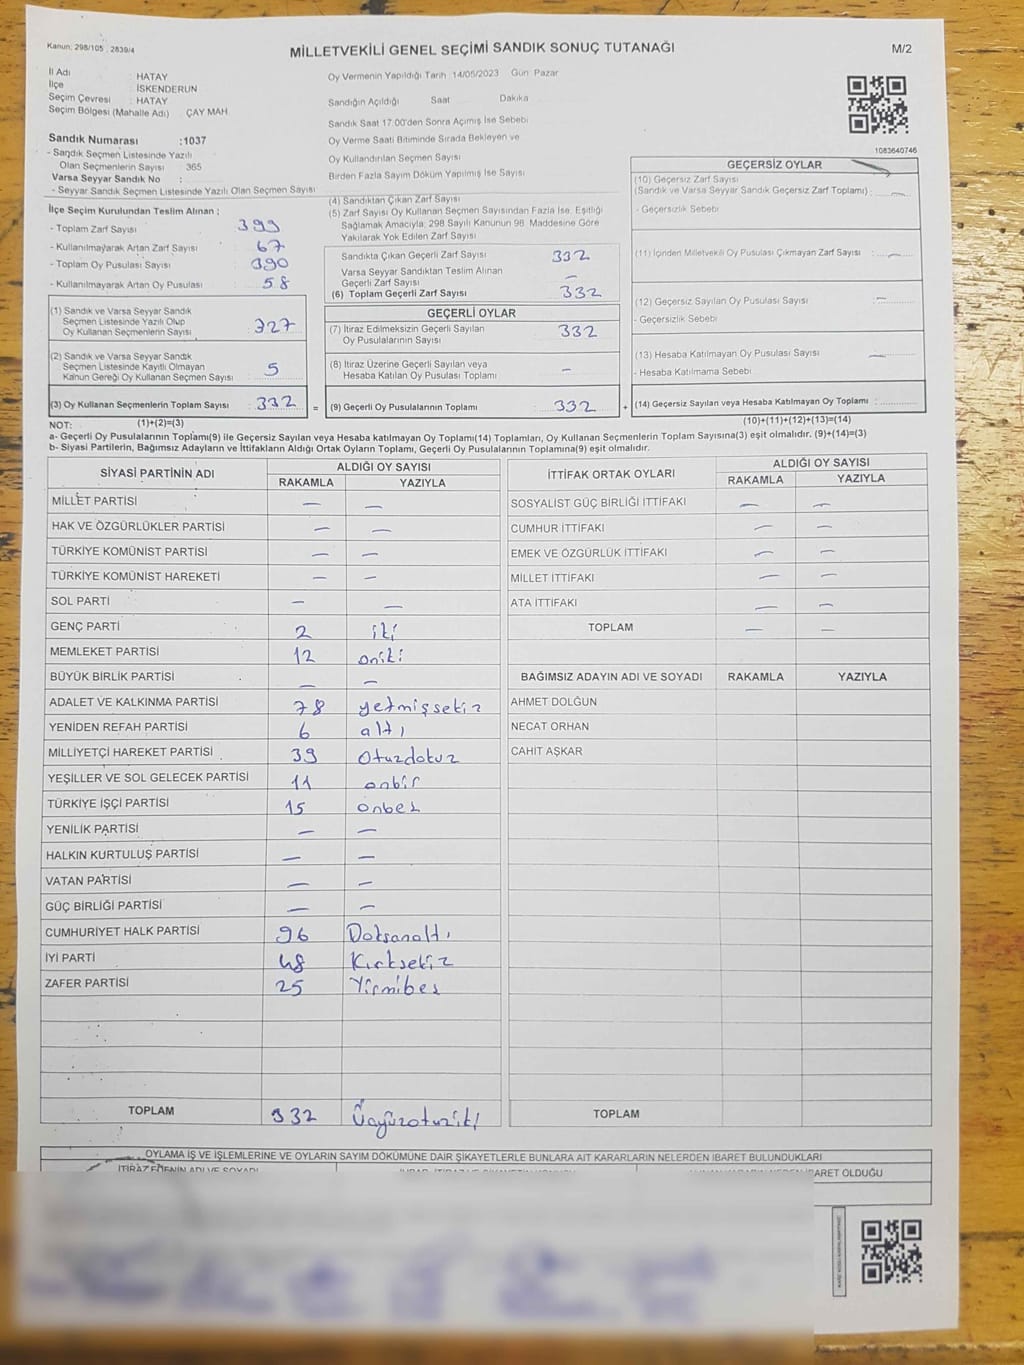 Kanun: 298/105 , 2839/4
MİLLETVEKİLİ GENEL SEÇİMİ SANDIK SONUÇ TUTANAĞI
M/2
İl Adı : HATAY
İlçe : İSKENDERUN
Seçim Çevresi : HATAY
Seçim Bölgesi (Mahalle Adı) ÇAY MAH.
Sandık Numarası :1037
- Sandık Seçmen Listesinde Yazılı
Olan Seçmenlerin Sayısı : 365
Varsa Seyyar Sandık No :
- Seyyar Sandık Seçmen Listesinde Yazılı Olan Seçmen Sayısı
Oy Vermenin Yapıldığı Tarih :14/05/2023 Gün Pazar
Sandığın Açıldığı Saat Dakika
Sandık Saat 17:00'den Sonra Açımış İse Sebebi
Oy Verme Saati Bitiminde Sırada Bekleyen ve
Oy Kullandırılan Seçmen Sayısı
Birden Fazla Sayım Döküm Yapılmış İse Sayısı
1083640746
İlçe Seçim Kurulundan Teslim Alınan :
- Toplam Zarf Sayısı 399
- Kullanılmayarak Artan Zarf Sayısı 67
- Toplam Oy Pusulası Sayısı 390
- Kullanılmayarak Artan Oy Pusulası 58
(1) Sandık ve Varsa Seyyar Sandık
Seçmen Listesinde Yazılı Olup
Oy Kullanan Seçmenlerin Sayısı 327
(2) Sandık ve Varsa Seyyar Sandık
Seçmen Listesinde Kayıtlı Olmayan
Kanun Gereği Oy Kullanan Seçmen Sayısı 5
(3) Oy Kullanan Seçmenlerin Toplam Sayısı : 332 =
(4) Sandıktan Çıkan Zarf Sayısı
(5) Zarf Sayısı Oy Kullanan Seçmen Sayısından Fazla İse, Eşitliği
Sağlamak Amacıyla; 298 Sayılı Kanunun 98. Maddesine Göre
Yakılarak Yok Edilen Zarf Sayısı
Sandıkta Çıkan Geçerli Zarf Sayısı 332
Varsa Seyyar Sandıktan Teslim Alınan
Geçerli Zarf Sayısı —
(6) Toplam Geçerli Zarf Sayısı 332
GEÇERLİ OYLAR
(7) İtiraz Edilmeksizin Geçerli Sayılan
Oy Pusulalarının Sayısı 332
(8) İtiraz Üzerine Geçerli Sayılan veya
Hesaba Katılan Oy Pusulası Toplamı —
(9) Geçerli Oy Pusulalarının Toplamı 332 +
GEÇERSİZ OYLAR
(10) Geçersiz Zarf Sayısı
(Sandık ve Varsa Seyyar Sandık Geçersiz Zarf Toplamı) : —
- Geçersizlik Sebebi
(11) İçinden Milletvekili Oy Pusulası Çıkmayan Zarf Sayısı : —
(12) Geçersiz Sayılan Oy Pusulası Sayısı : —
- Geçersizlik Sebebi
(13) Hesaba Katılmayan Oy Pusulası Sayısı —
- Hesaba Katılmama Sebebi
(14) Geçersiz Sayılan veya Hesaba Katılmayan Oy Toplamı :
NOT: (1)+(2)=(3) (10)+(11)+(12)+(13)=(14)
a- Geçerli Oy Pusulalarının Toplamı(9) ile Geçersiz Sayılan veya Hesaba katılmayan Oy Toplamı(14) Toplamları, Oy Kullanan Seçmenlerin Toplam Sayısına(3) eşit olmalıdır. (9)+(14)=(3)
b- Siyasi Partilerin, Bağımsız Adayların ve İttifakların Aldığı Ortak Oyların Toplamı, Geçerli Oy Pusulalarının Toplamına(9) eşit olmalıdır.
SİYASİ PARTİNİN ADI ALDIĞI OY SAYISI
RAKAMLA YAZIYLA
MİLLET PARTİSİ — —
HAK VE ÖZGÜRLÜKLER PARTİSİ — —
TÜRKİYE KOMÜNİST PARTİSİ — —
TÜRKİYE KOMÜNİST HAREKETİ — —
SOL PARTİ — —
GENÇ PARTİ 2 iki
MEMLEKET PARTİSİ 12 oniki
BÜYÜK BİRLİK PARTİSİ — —
ADALET VE KALKINMA PARTİSİ 78 yetmişsekiz
YENİDEN REFAH PARTİSİ 6 altı
MİLLİYETÇİ HAREKET PARTİSİ 39 Otuzdokuz
YEŞİLLER VE SOL GELECEK PARTİSİ 11 onbir
TÜRKİYE İŞÇİ PARTİSİ 15 onbeş
YENİLİK PARTİSİ — —
HALKIN KURTULUŞ PARTİSİ — —
VATAN PARTİSİ — —
GÜÇ BİRLİĞİ PARTİSİ — —
CUMHURİYET HALK PARTİSİ 96 Doksanaltı
İYİ PARTİ 48 Kırksekiz
ZAFER PARTİSİ 25 Yirmibeş
TOPLAM 332 Üçyüzotuziki
İTTİFAK ORTAK OYLARI ALDIĞI OY SAYISI
RAKAMLA YAZIYLA
SOSYALİST GÜÇ BİRLİĞİ İTTİFAKI — —
CUMHUR İTTİFAKI — —
EMEK VE ÖZGÜRLÜK İTTİFAKI — —
MİLLET İTTİFAKI — —
ATA İTTİFAKI — —
TOPLAM — —
BAĞIMSIZ ADAYIN ADI VE SOYADI RAKAMLA YAZIYLA
AHMET DOLĞUN
NECAT ORHAN
CAHİT AŞKAR
TOPLAM
OYLAMA İŞ VE İŞLEMLERİNE VE OYLARIN SAYIM DÖKÜMÜNE DAİR ŞİKAYETLERLE BUNLARA AİT KARARLARIN NELERDEN İBARET BULUNDUKLARI
İTİRAZ EDENİN ADI VE SOYADI